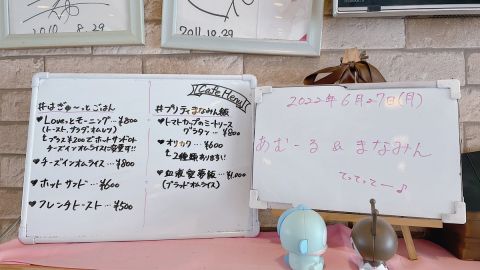 2010. 8. 29
2011. 10. 29
Cafe Menu
#はぎゅ〜っとごはん
♥Loveっとモーニング…¥800
(トースト、サラダ、オムレツ)
プラス¥200でホットサンドor
チーズインオムライスに変更す!!
♥チーズインオムライス…¥800
♥ホットサンド…¥600
♥フレンチトースト…¥500
#プリティまなみん飯
♥トマトカップのミートソース
グラタン…¥800
♥オリカク…¥600
2種類あります!!
♥血液電夢飯…¥1,000
(ブラッドオムライス)
2022年6月27日(月)
あむーる & まなみん
てってってー♪